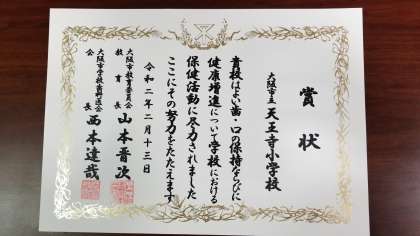 賞状
大阪市立 天王寺小学校
貴校はよい歯・口の保持ならびに
健康増進について学校における
保健活動に尽力されました
ここにその努力をたたえます
令和二年二月十三日
大阪市教育委員会
教育長 山本晋次
大阪市学校歯科医会
会長 西本達哉